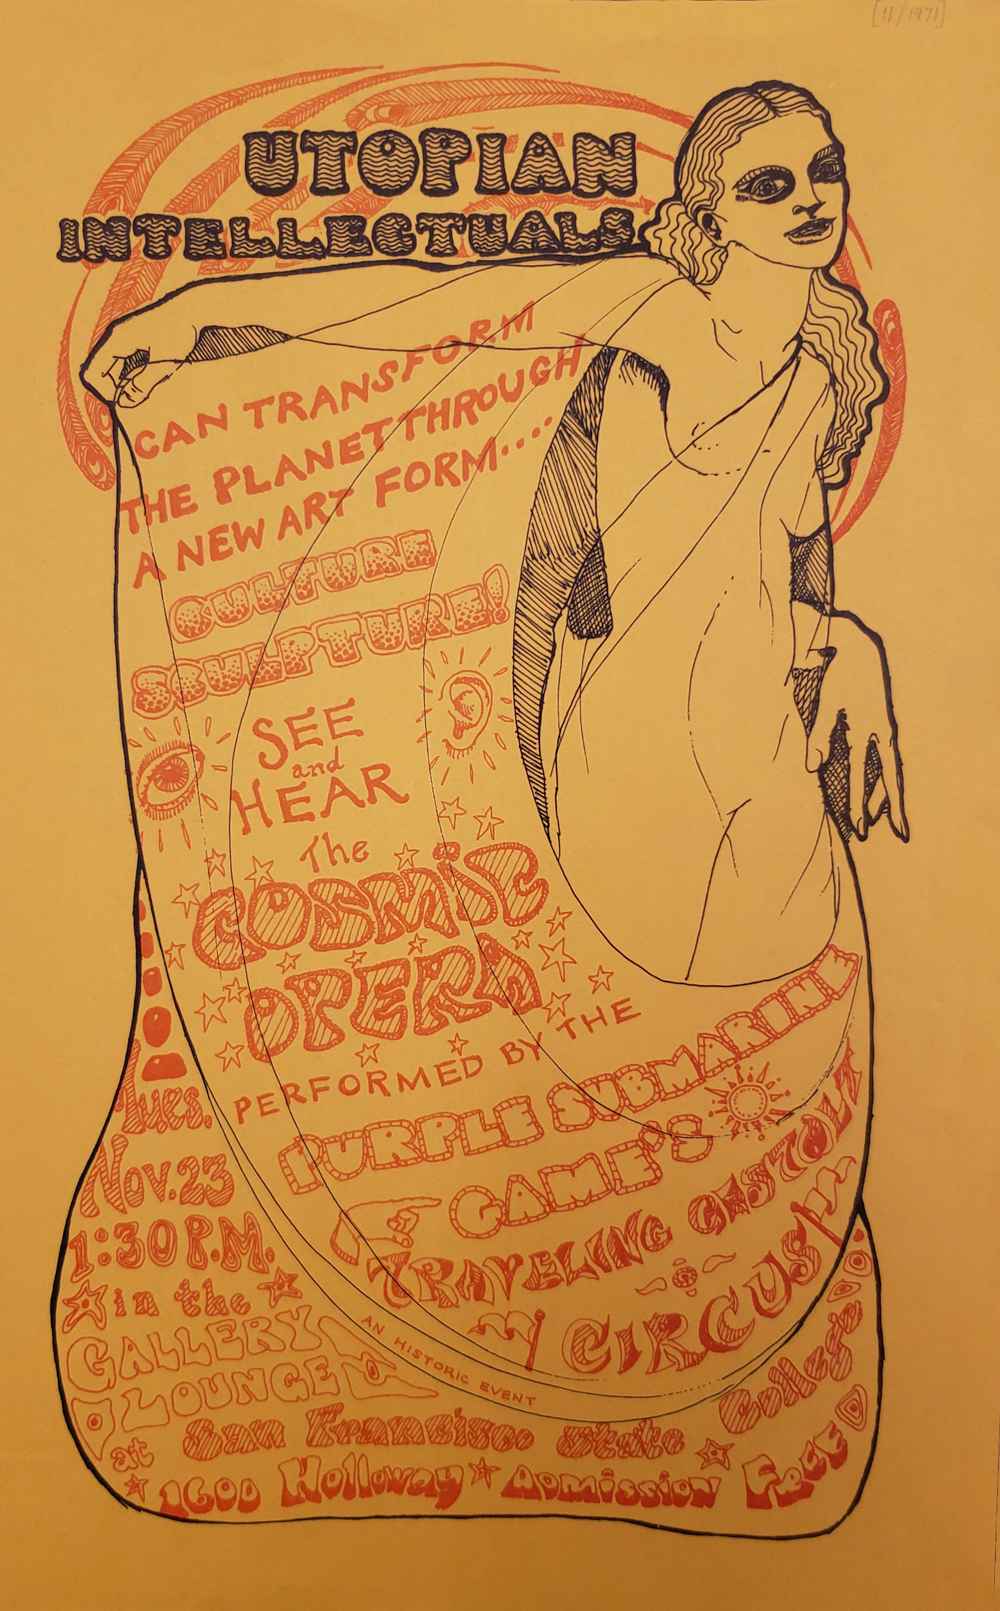 [11/1971]
UTOPIAN
INTELLECTUALS
CAN TRANSFORM
THE PLANET THROUGH
A NEW ART FORM....
CULTURE
SCULPTURE!
SEE
and
HEAR
The
COSMIC
OPERA
PERFORMED BY THE
PURPLE SUBMARINE
GAME'S
TRAVELING GESTALT
CIRCUS
AN HISTORIC EVENT
Tues.
Nov. 23
1:30 P.M.
in the
GALLERY
LOUNGE
at San Francisco State College
1600 Holloway Admission Free